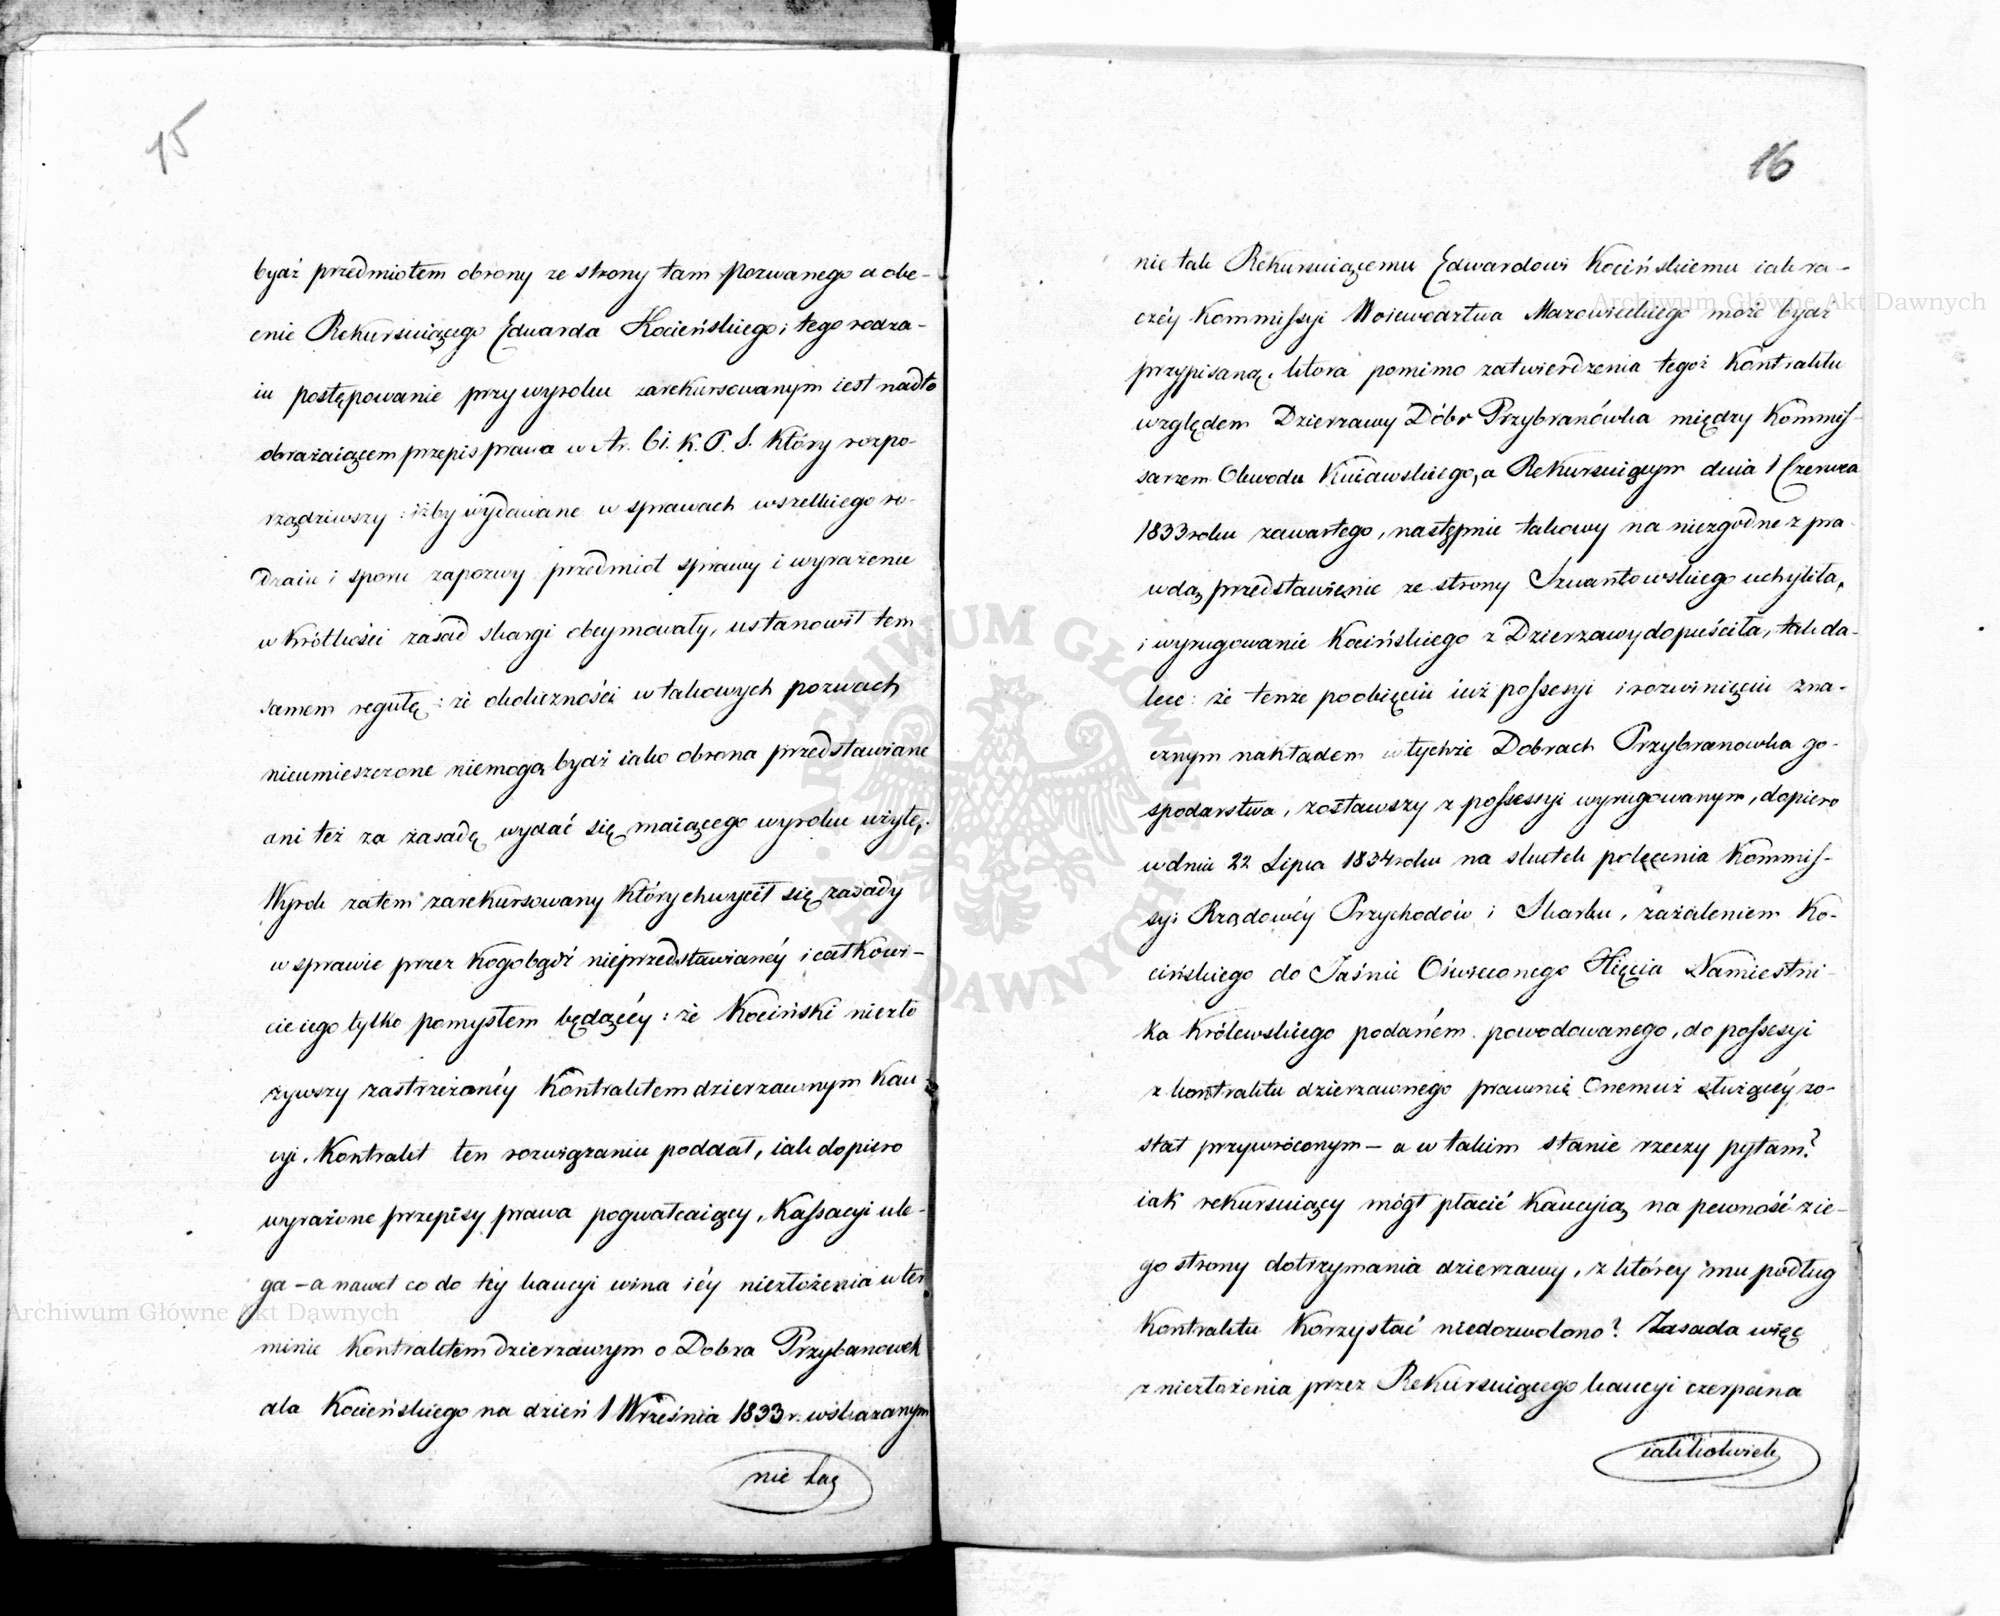 15
bydź przedmiotem obrony ze strony tam pozwanego a obe-
cnie Rekursuiącego Eduarda Kocieńskiego; tego rodza-
iu postępowanie przy wyroku zarekursowanym iest nadto
obrażaiącem przepis prawa w Ar. 61. K. P. S. który rozpo-
rządziwszy: iżby wydawane w sprawach wszelkiego ro-
dzaiu i sporu zapozwy przedmiot sprawy i wyrażenie
w krótkości zasad skargi obeymowały, ustanowił tem
samem regułę: że okoliczności w takowych pozwach
nieumieszczone niemogą bydź iako obrona przedstawiane
ani też za zasadę wydać się maiącego wyroku użyte.
Wyrok zatem zarekursowany który chwycił się zasady
w sprawie przez kogobądź nieprzedstawianéy i całkowi-
cie iego tylko pomysłem będącéy: że Kociński niezło
żywszy zastrzeżonéy Kontraktem dzierzawnym Kau-
cyi, Kontrakt ten rozwiązaniu poddał, iak dopiero
wyrażone przepisy prawa pogwałcaiący, Kassacyi ule-
ga - a nawet co do téy kaucyi wina iéy niezłożenia w ter
minie Kontraktem dzierzawym o Dobra Przybanowek
dla Kocieńskiego na dzień 1 Września 1833 r. wskazanym
nie tak
16
nie tak Rekursuiącemu Edwardowi Kocińskiemu iak ra-
czéy Kommissyi Woiewodztwa Mazowieckiego może bydź
przypisaną, która pomimo zatwierdzenia tegoż Kontraktu
względem Dzierzawy Dóbr Przybranówka między Kommis-
sarzem Obwodu Kuiawskiego, a Rekursuiącym dnia 1 Czerwca
1833 roku zawartego, następnie takowy na niezgodne z pra
wdą przedstawienie ze strony Szwantowskiego uchyliła,
i wyrugowanie Kocińskiego z Dzierzawy dopuściła, tak da-
lece: że tenże po obięciu iuż possesyi i rozwinięciu zna-
cznym nakładem w tychże Dobrach Przybranowka go-
spodarstwa, zostawszy z possessyi wyrugowanym, dopiero
w dniu 22 Lipca 1834 roku na skutek polecenia Kommis-
syi Rządowéy Przychodów i Skarbu, zażaleniem Ko-
cińskiego do Jaśnie Oświeconego Xięcia Namiestni-
ka Królewskiego podaném powodowanego, do possesyi
z kontraktu dzierzawnego prawnie Onemuż służącéy zo-
stał przywróconym - a w takim stanie rzeczy pytam?
iak rekursuiący mógł płacić Kaucyią na pewność z ie-
go strony dotrzymania dzierzawy, z którey mu podług
Kontraktu Korzystać niedozwolono? Zasada więc
z niezłożenia przez Rekursuiącego kaucyi czerpana
iakkolwiek
Archiwum Główne Akt Dawnych
Archiwum Główne Akt Dawnych
ARCHIWUM GŁÓWNE AKT DAWNYCH